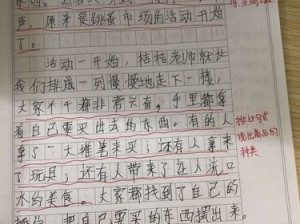 克，原来是跳蚤市场的活动开始
了。
活动一开始，桔桔老师就让
我们排成一列慢慢地走下一楼，
大家个个都非常兴奋，手里都拿
着自己要卖出去的东西。有的人
拿了一大堆笔来卖；还有人拿来
了玩具；还有人带来了让人流口
水的美食。大家都找到了自己的
把自己要买的东西摆出来。
排比句写
出商品的
种类